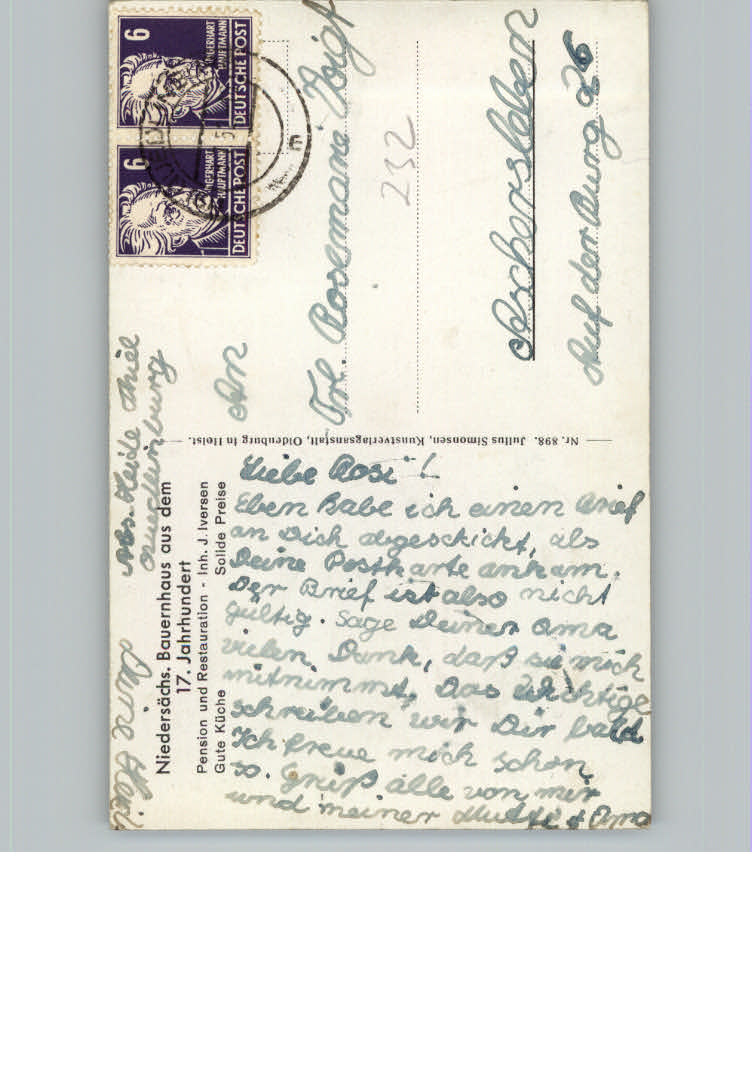 Niedersächs. Bauernhaus aus dem
17. Jahrhundert
Pension und Restauration - Inh. J. Iversen
Gute Küche Solide Preise
Liebe Rosi!
Eben habe ich einen Brief
an Dich abgeschickt, als
Deine Postkarte ankam.
Der Brief ist also nicht
gültig. Sage Deiner Oma
vielen Dank, daß sie mich
mitnimmt. Das Wichtige
schreiben wir Dir bald
Ich freue mich schon
so. Grüß alle von mir
und meiner Mutti + Oma
Deine Heidi
Abs. Heide Thiel
Quedlinburg
Nr. 898. Julius Simonsen, Kunstverlagsanstalt, Oldenburg in Holst.
6
GERHART
HAUPTMANN
DEUTSCHE POST
6
GERHART
HAUPTMANN
DEUTSCHE POST
An
Frl. Rosemarie Voigt
232
Aschersleben
Auf der Burg 26